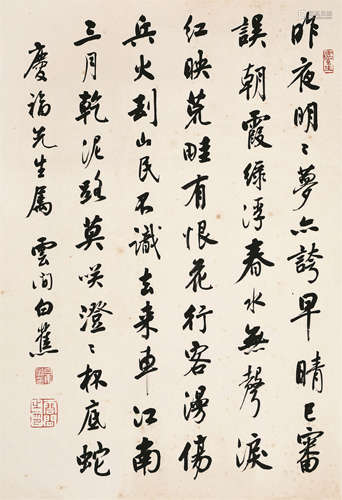 昨夜明〻夢亦誇早晴已審
誤朝霞綠浮春水無聲淚
紅映荒畦有恨花行客漫傷
兵火劫山民不識去来車江南
三月乾泥路莫咲澄〻杯底蛇
慶福先生属 雲间白蕉